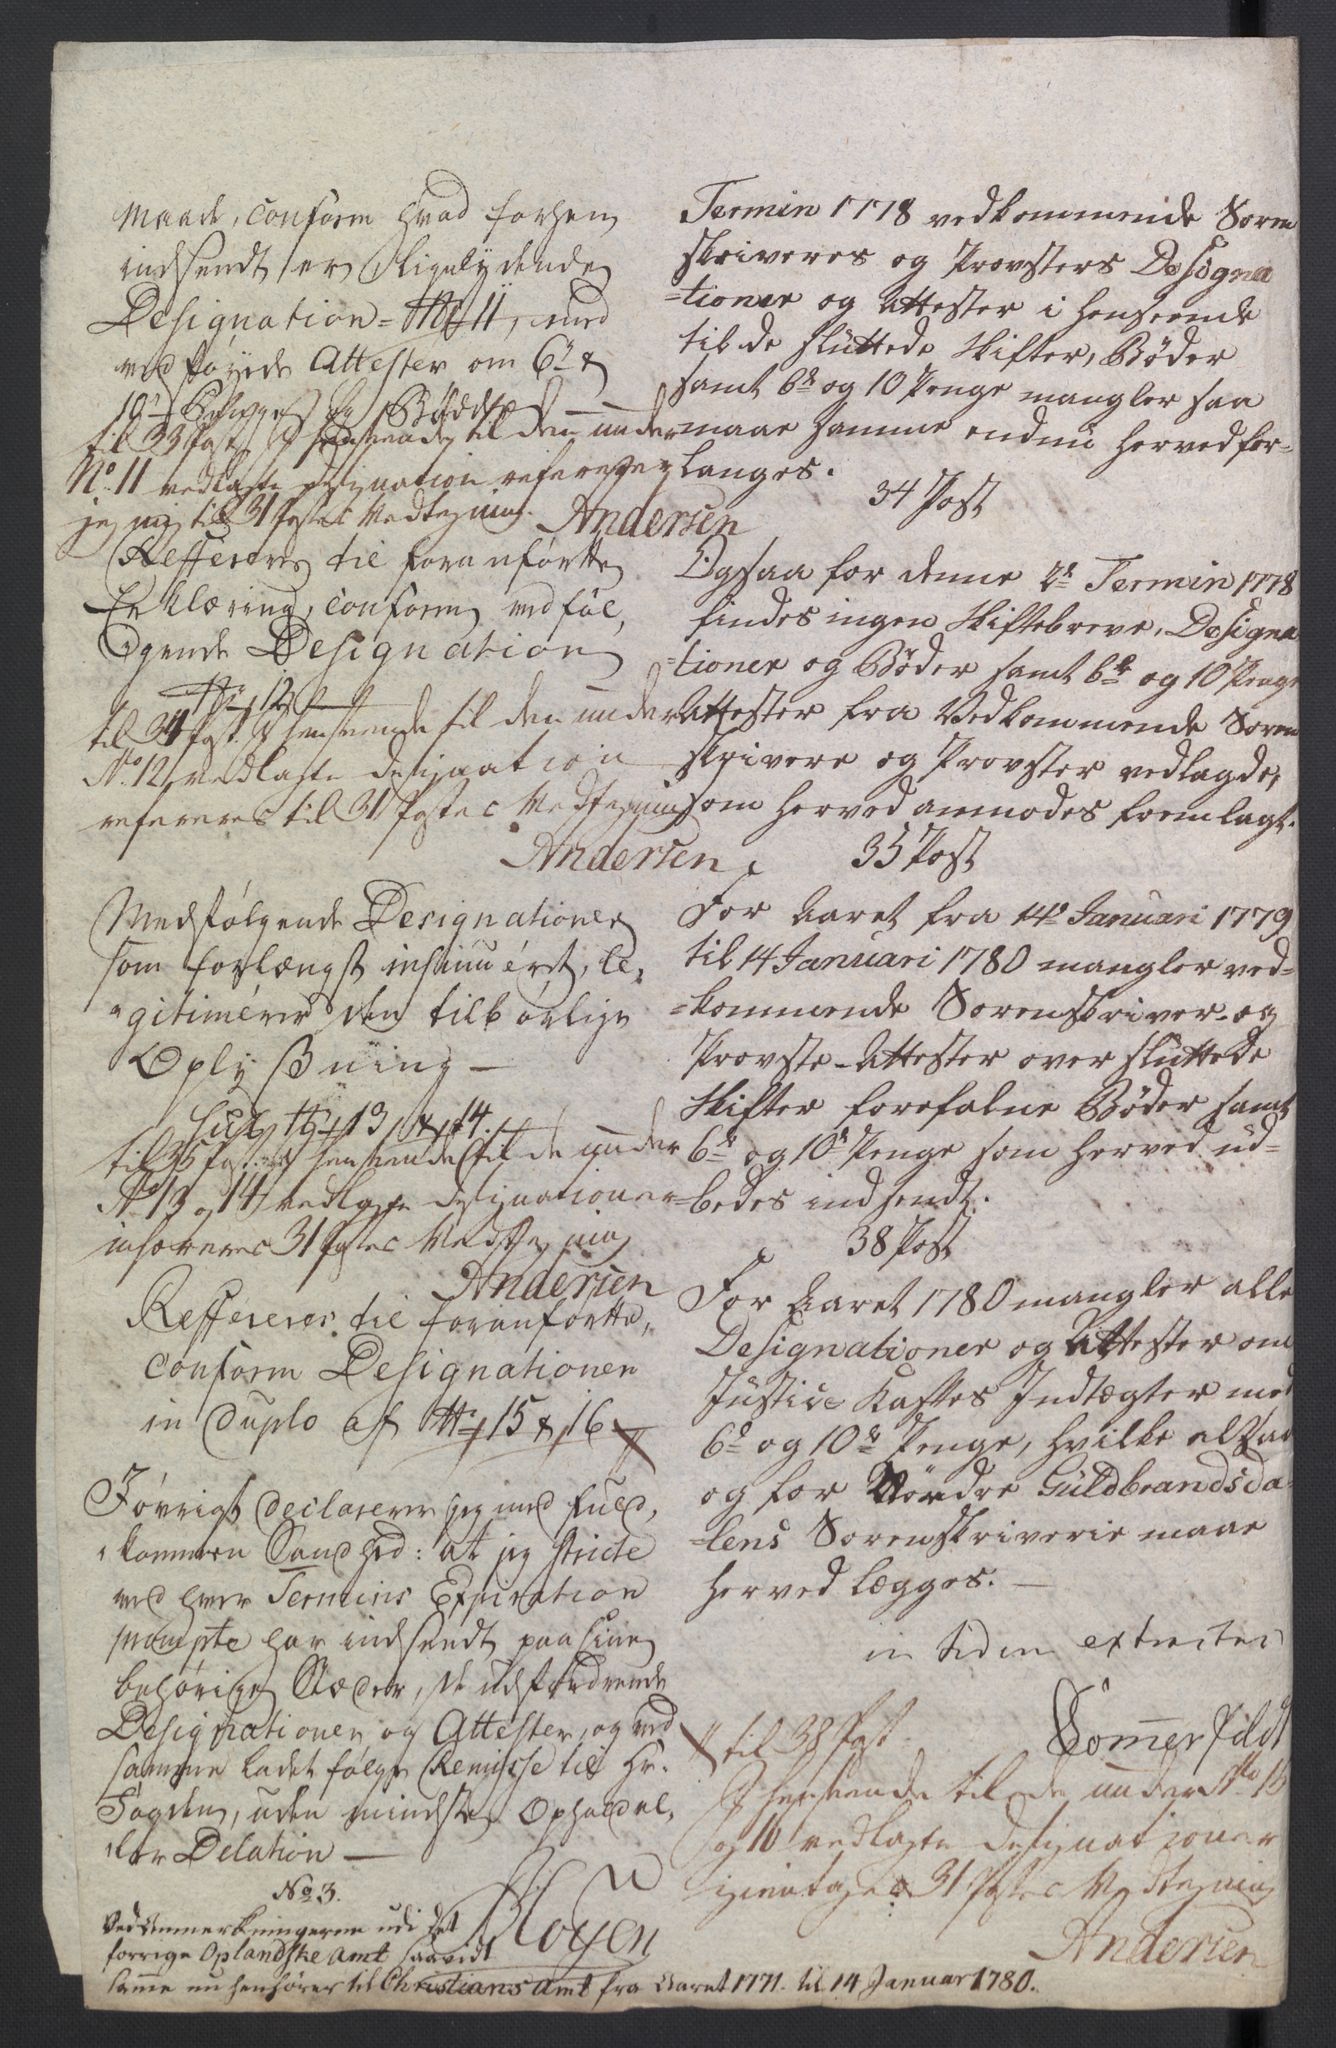 Maade, conform hvad forhen
indsendt er, Ligelydende
Designation = No 11, med
vedføyede Attester om 6te &
10de Penge og Bøder
til 33 Post. I henseende til den under
No. 11 vedlagte designation refererer
jeg mig til 31 Postes Vedtegning.
Andersen
Reffereres til foranførtte
Erklæring, conform vedføl,
gende Designation
No 12
til 34 Post. I henseende til den under
No. 12 vedlagte designation
refereres til 31 Postes Vedtegning
Andersen
Medfølgende Designationer
som forlængst insinuéret, le,
gitimérer den tilbørlige
Oplyßning —
sub No 13 & 14.
til 35 Post i henseende til de under
No 13 og 14 vedlagte designationer
31 Postes Vedtegning
Andersen
Reffereres til foranførtte,
conform Designationen
in Duplo af No 15 & 16
Iøvrigt declarerer jeg med fuld,
kommen Sandhed: at jeg stricte
ved hver Termins Expiration
prompte har indsendt paa sine
behørige Stæder, de udfordrende
Designationer og Attester, og med
samme ladet følge Remisse til Hr.
Fogden, uden mindste Ophold el,
ler Delation —
Bloyen
No 3.
Ved Anmerkningerne udi det
forrige Oplandske Amt saavidt
samme nu henhører til Christians Amt fra Aaret 1771. til 14 Januar 1780.
Termin 1778 vedkommende Soren
skriveres og Provsters Designa
=tioner og Attester i henseende
til de sluttede Skifter, Bøder
samt 6te og 10 Penge mangler saa
maae samme endnu herved for=
langes.
34 Post
Ogsaa for denne 2de Termin 1778
findes ingen Skiftebreve, Designa
=tioner og Bøder samt 6te og 10 Penge
Attester fra Vedkommende Soren
skrivere og Provster vedlagde,
som herved anmodes fremlagt.
35 Post
For Aaret fra 14de Januari 1779
til 14 Januari 1780 mangler ved=
=kommende Sorenskriver- og
Provste-Attester over sluttede
Skifter forefalne Bøder samt
6te og 10de Penge som herved ud=
=bedes indsendt.
38 Post
For Aaret 1780 mangler alle
Designationer og Attester om
Justice Kassens Indtægter med
6te og 10de Penge, hvilke altsaa
og for Nordre Guldbrandsda=
=lens Sorenskriverie maae
herved lægges. —
in fidem extractus
Sommerfeldt
til 38 Post.
I henseende til de under No 15
og 16 vedlagte designationer
igientages 31 Postes Vedtegning
Andersen